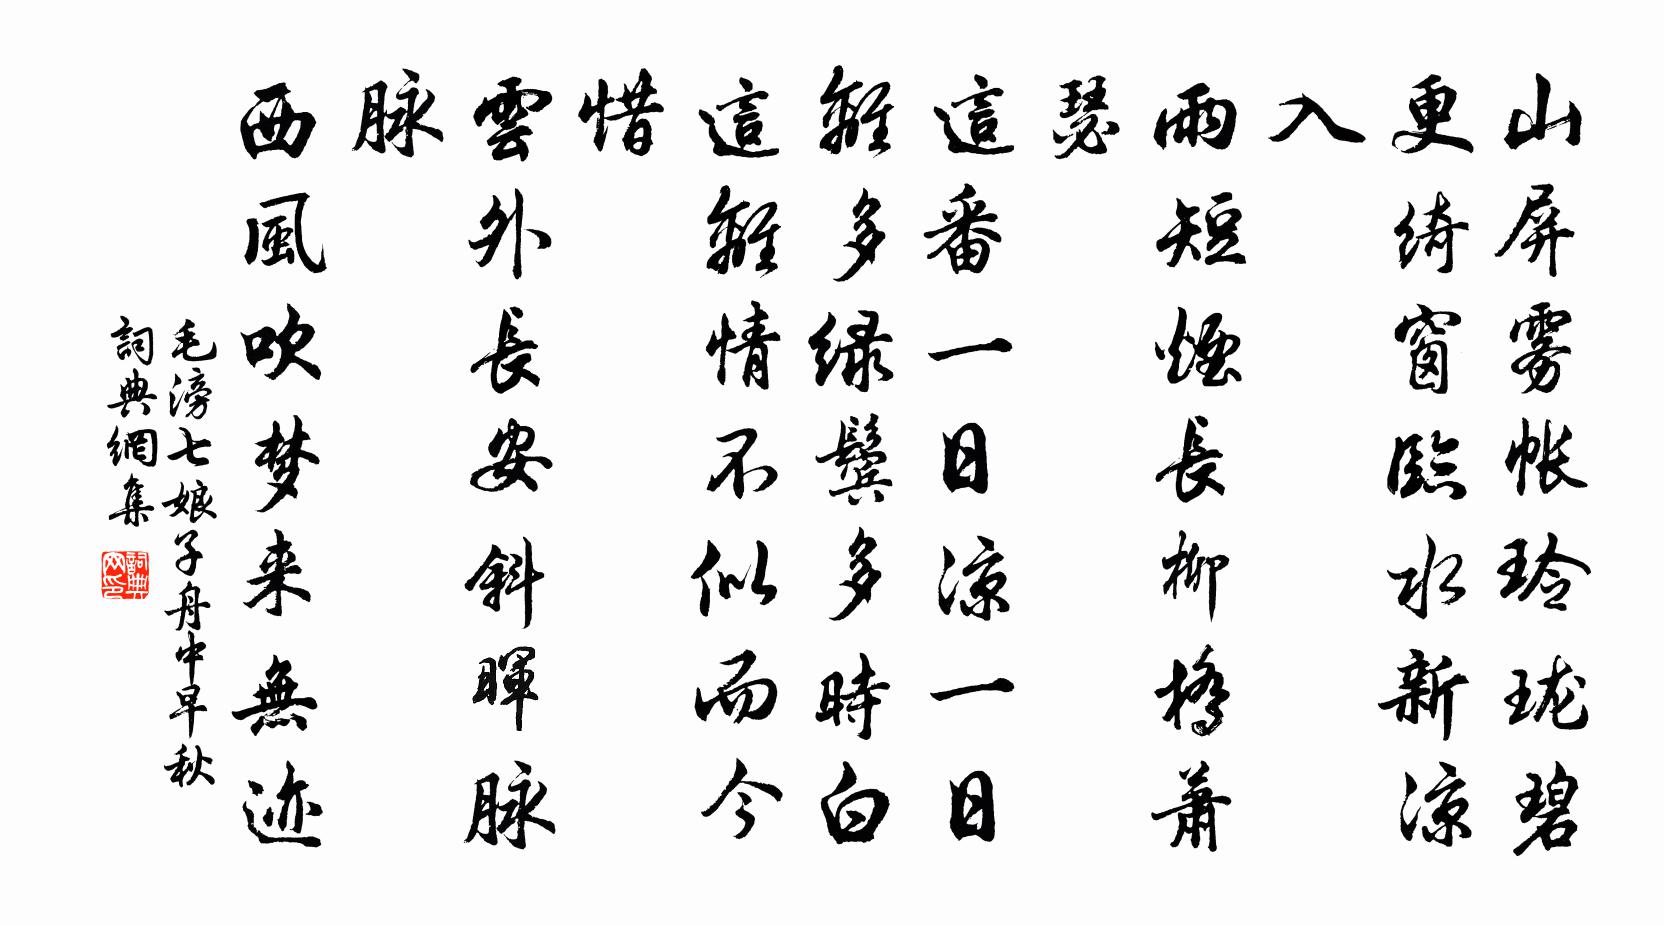 山屏雾帐玲珑碧
更绮窗臨水新涼
入
雨短煙長柳橋蕭
瑟
這番一日涼一日
離多绿鬓多時白
這離情不似而今
惜
雲外長安斜暉脉
脉
西風吹梦来無迹
毛滂七娘子舟中早秋
詞典網集
詞典
网印